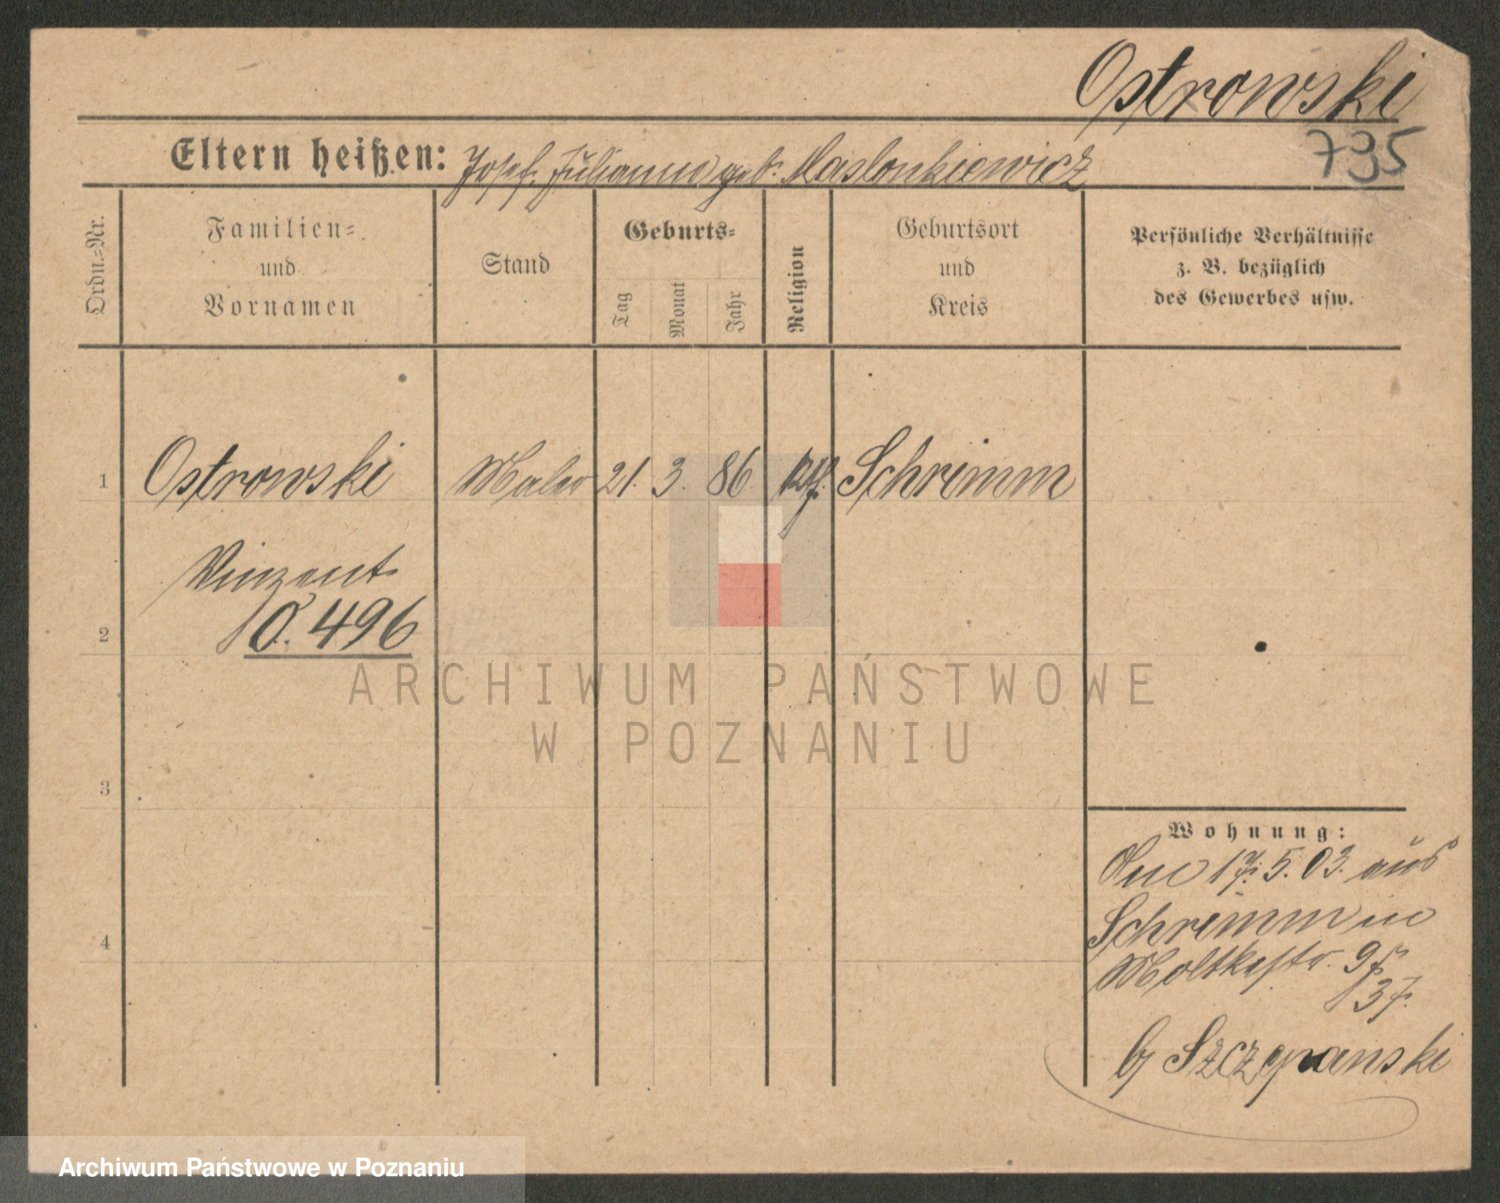 Ostrowski
735
Eltern heißen: Josef, Julianna geb. Maslonkiewicz
Ordn.-Nr.
Familien-
und
Vornamen
Stand
Geburts-
Tag
Monat
Jahr
Religion
Geburtsort
und
Kreis
Persönliche Verhältnisse
z. B. bezüglich
des Gewerbes usw.
1 Ostrowski Maler 21. 3. 86 Schrimm
Vinzent
2 O. 496
ARCHIWUM PAŃSTWOWE
W POZNANIU
3
Wohnung:
17. 5. 03. aus
Schrimm in
4
Moltkestr. 9
37.
by Szczepanski
Archiwum Państwowe w Poznaniu